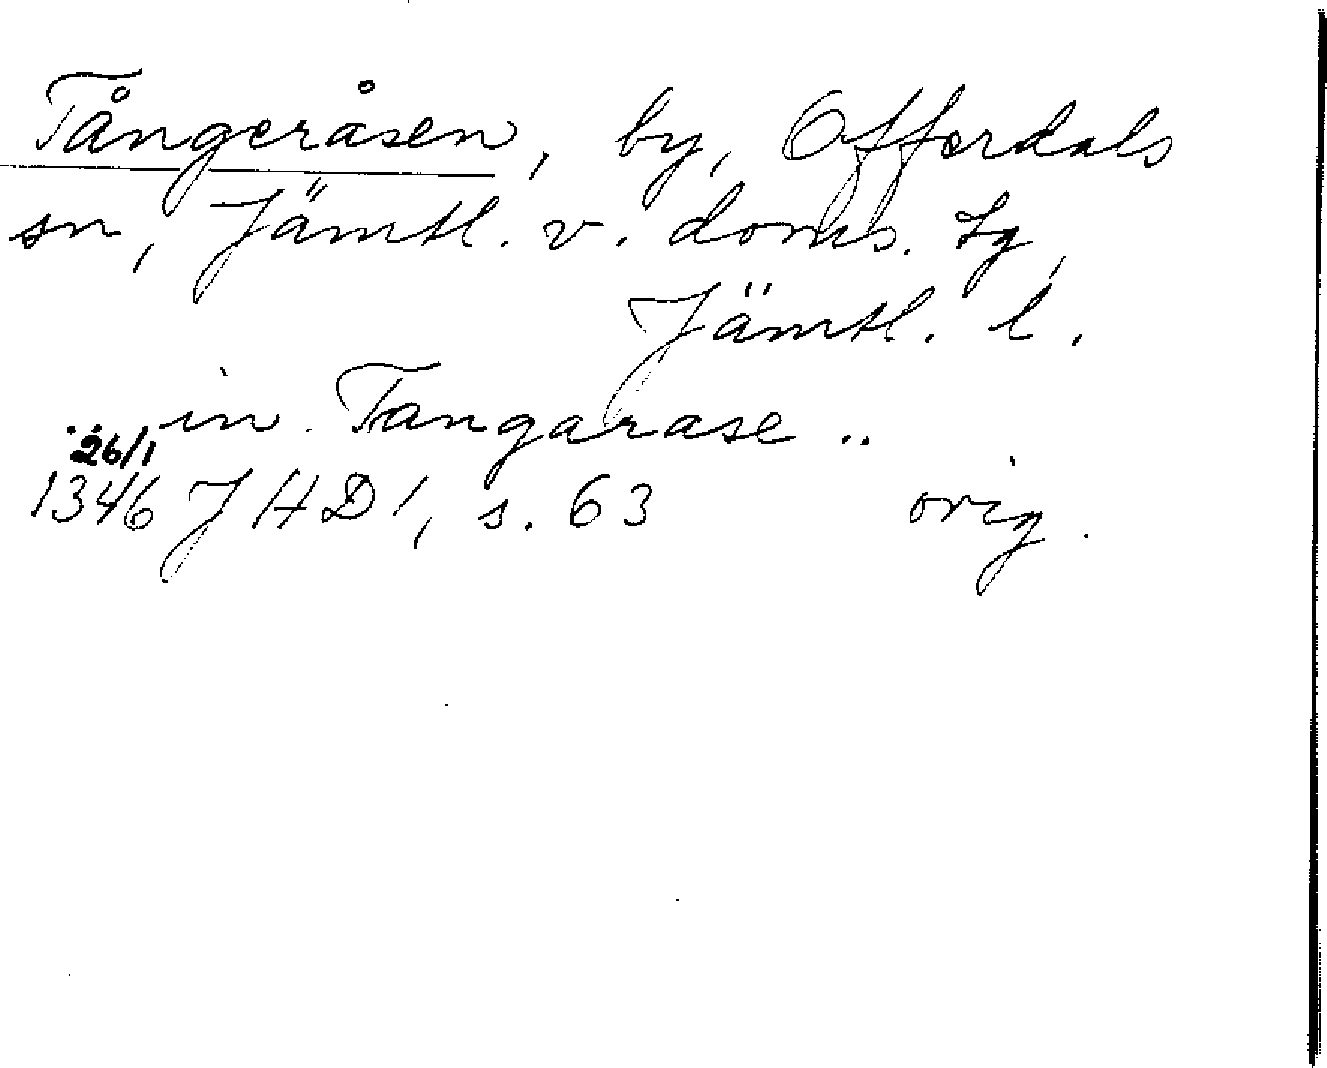 Tångeråsen, by, Offerdals
sn, Jämtl. v. doms. tg,
Jämtl. l.
.. in Tangarase ..
26/1
1346 JHD 1, s. 63 orig.